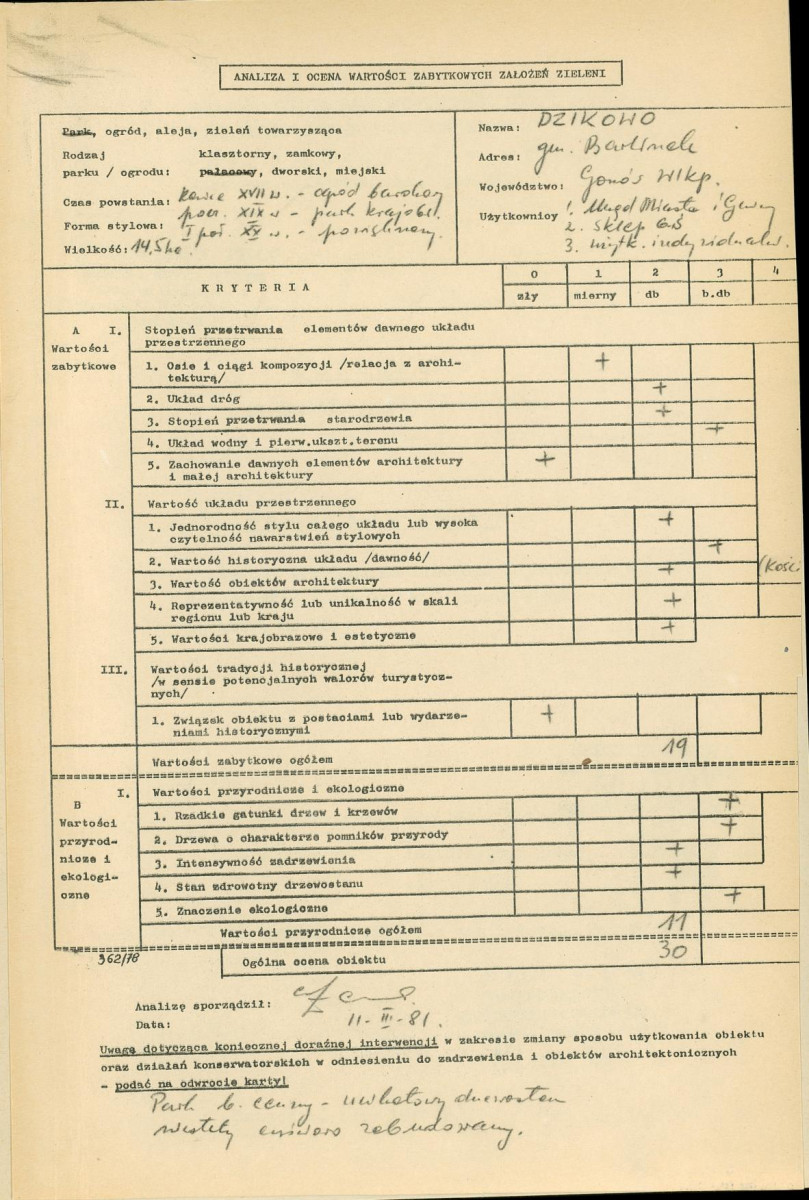 ANALIZA I OCENA WARTOŚCI ZABYTKOWYCH ZAŁOŻEŃ ZIELENI
Park, ogród, aleja, zieleń towarzysząca
Rodzaj klasztorny, zamkowy,
parku / ogrodu: pałacowy, dworski, miejski
Czas powstania: koniec XVII w. - ogród barokowy
pocz. XIX w - park krajobr.
Forma stylowa: I poł. XX w. -
Wielkość: 14,5 ha
Nazwa: DZIKOWO
Adres: gm. Barlinek
Województwo: Gorzów Wlkp.
Użytkownicy 1. Urząd Miasta i Gminy
2. Sklep GS
3. użytk. indywidualn.
KRYTERIA
0 1 2 3 4
zły mierny db b.db
A I. Stopień przetrwania elementów dawnego układu
Wartości przestrzennego
zabytkowe
1. Osie i ciągi kompozycji /relacja z archi-
tekturą/ +
2. Układ dróg +
3. Stopień przetrwania starodrzewia +
4. Układ wodny i pierw.ukszt.terenu +
5. Zachowanie dawnych elementów architektury +
i małej architektury
II. Wartość układu przestrzennego
1. Jednorodność stylu całego układu lub wysoka +
czytelność nawarstwień stylowych
2. Wartość historyczna układu /dawność/ +
3. Wartość obiektów architektury + (kości
4. Reprezentatywność lub unikalność w skali +
regionu lub kraju
5. Wartości krajobrazowe i estetyczne +
III. Wartości tradycji historycznej
/w sensie potencjalnych walorów turystycz-
nych/
1. Związek obiektu z postaciami lub wydarze- +
niami historycznymi
Wartości zabytkowe ogółem 19
B I. Wartości przyrodnicze i ekologiczne
Wartości
przyrod-
nicze i
ekologi-
czne
1. Rzadkie gatunki drzew i krzewów +
2. Drzewa o charakterze pomników przyrody +
3. Intensywność zadrzewienia +
4. Stan zdrowotny drzewostanu +
5. Znaczenie ekologiczne +
Wartości przyrodnicze ogółem 11
362/78 Ogólna ocena obiektu 30
Analizę sporządził:
Data: 11-III-81.
Uwagę dotycząca koniecznej doraźnej interwencji w zakresie zmiany sposobu użytkowania obiektu
oraz działań konserwatorskich w odniesieniu do zadrzewienia i obiektów architektonicznych
- podać na odwrocie karty!
Park b. cenny - unikatowy drzewostan
niestety zabudowany.